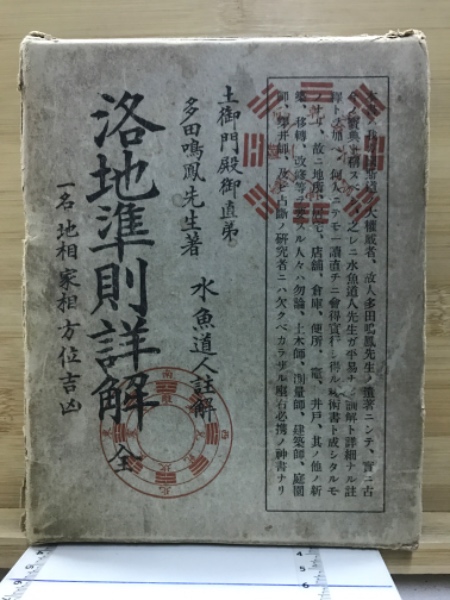 斯道ノ大權威者、故人多田鳴鳳先生ノ著ニシテ、實ニ古
典ト稱スベク、之レニ水魚道人先生ガ平易ナル解ト詳細ナル註
釋トヲ加ヘ、何人ニテモ一讀直チニ會得實行シ得ル術書ト成シタルモ
ノナリ、故ニ地所、住宅、店舗、倉庫、便所、竈、井戸、其ノ他ノ新
築、移轉、改修等スル人々ハ勿論、土木師、測量師、建築師、庭園
師、鑿井師、及ビ占斷ノ研究者ニハ欠クベカラザル座右必携ノ神書ナリ
土御門殿御直弟
多田鳴鳳先生著
水魚道人註解
洛地準則詳解 全
一名地相家相方位吉凶
南
西